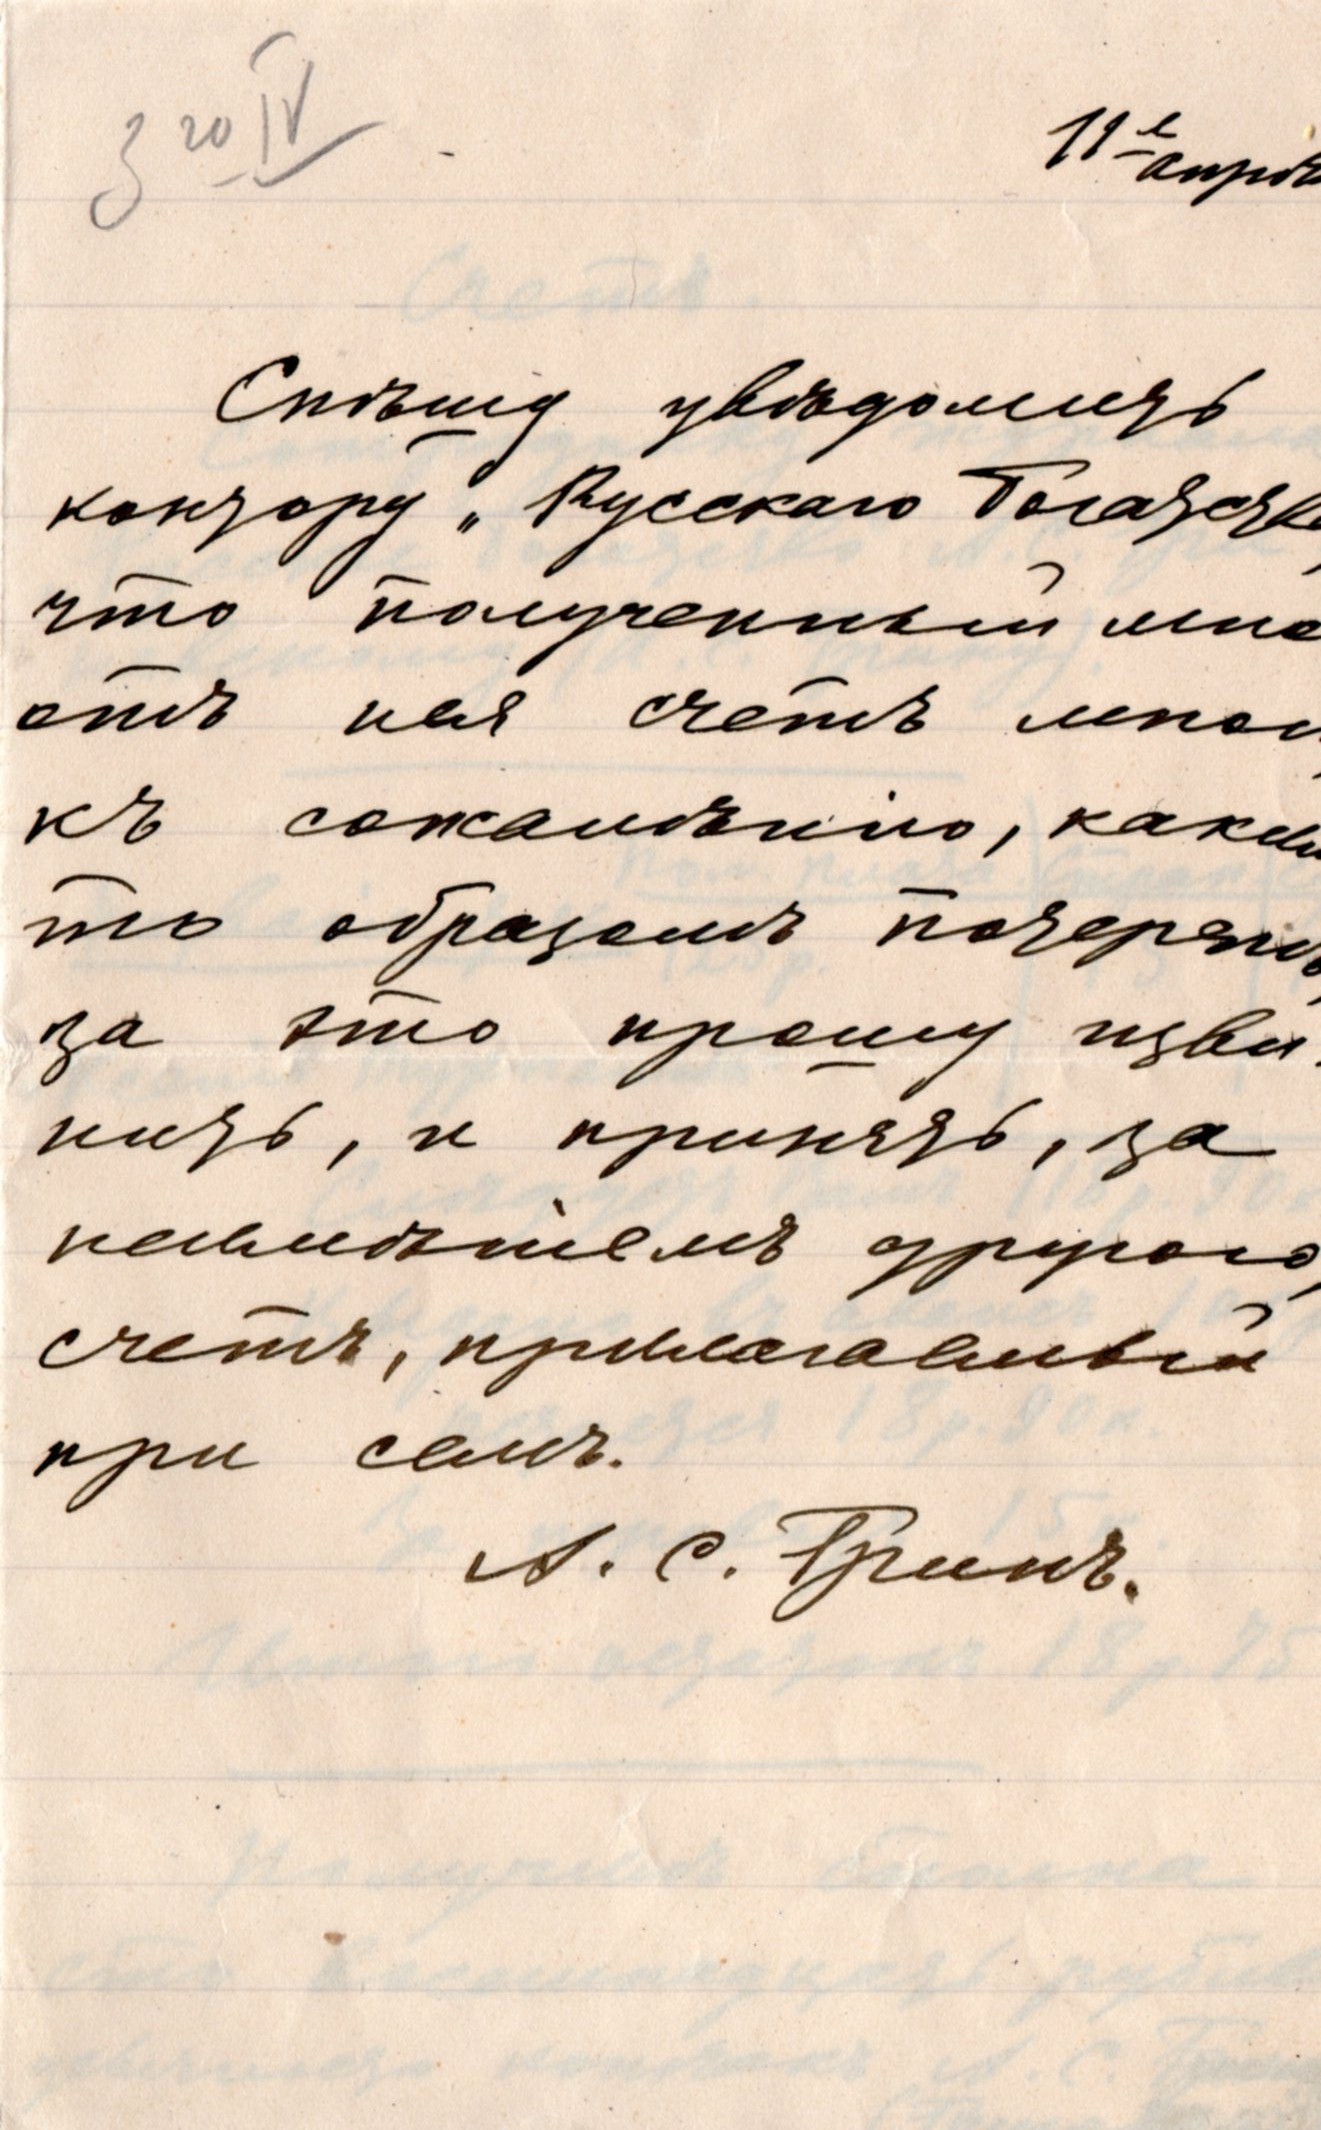 З 20 IV
11е апрѣ
Спѣшу увѣдомить
контору „Русскаго Богатств
что полученный мно
отъ нея счетъ мной
къ сожалѣнію, каким
то образомъ потерянъ,
за это прошу изви-
нить, и принять, за
неимѣніемъ другого,
счетъ, прилагаемый
при семъ.
А. С. Гринъ.